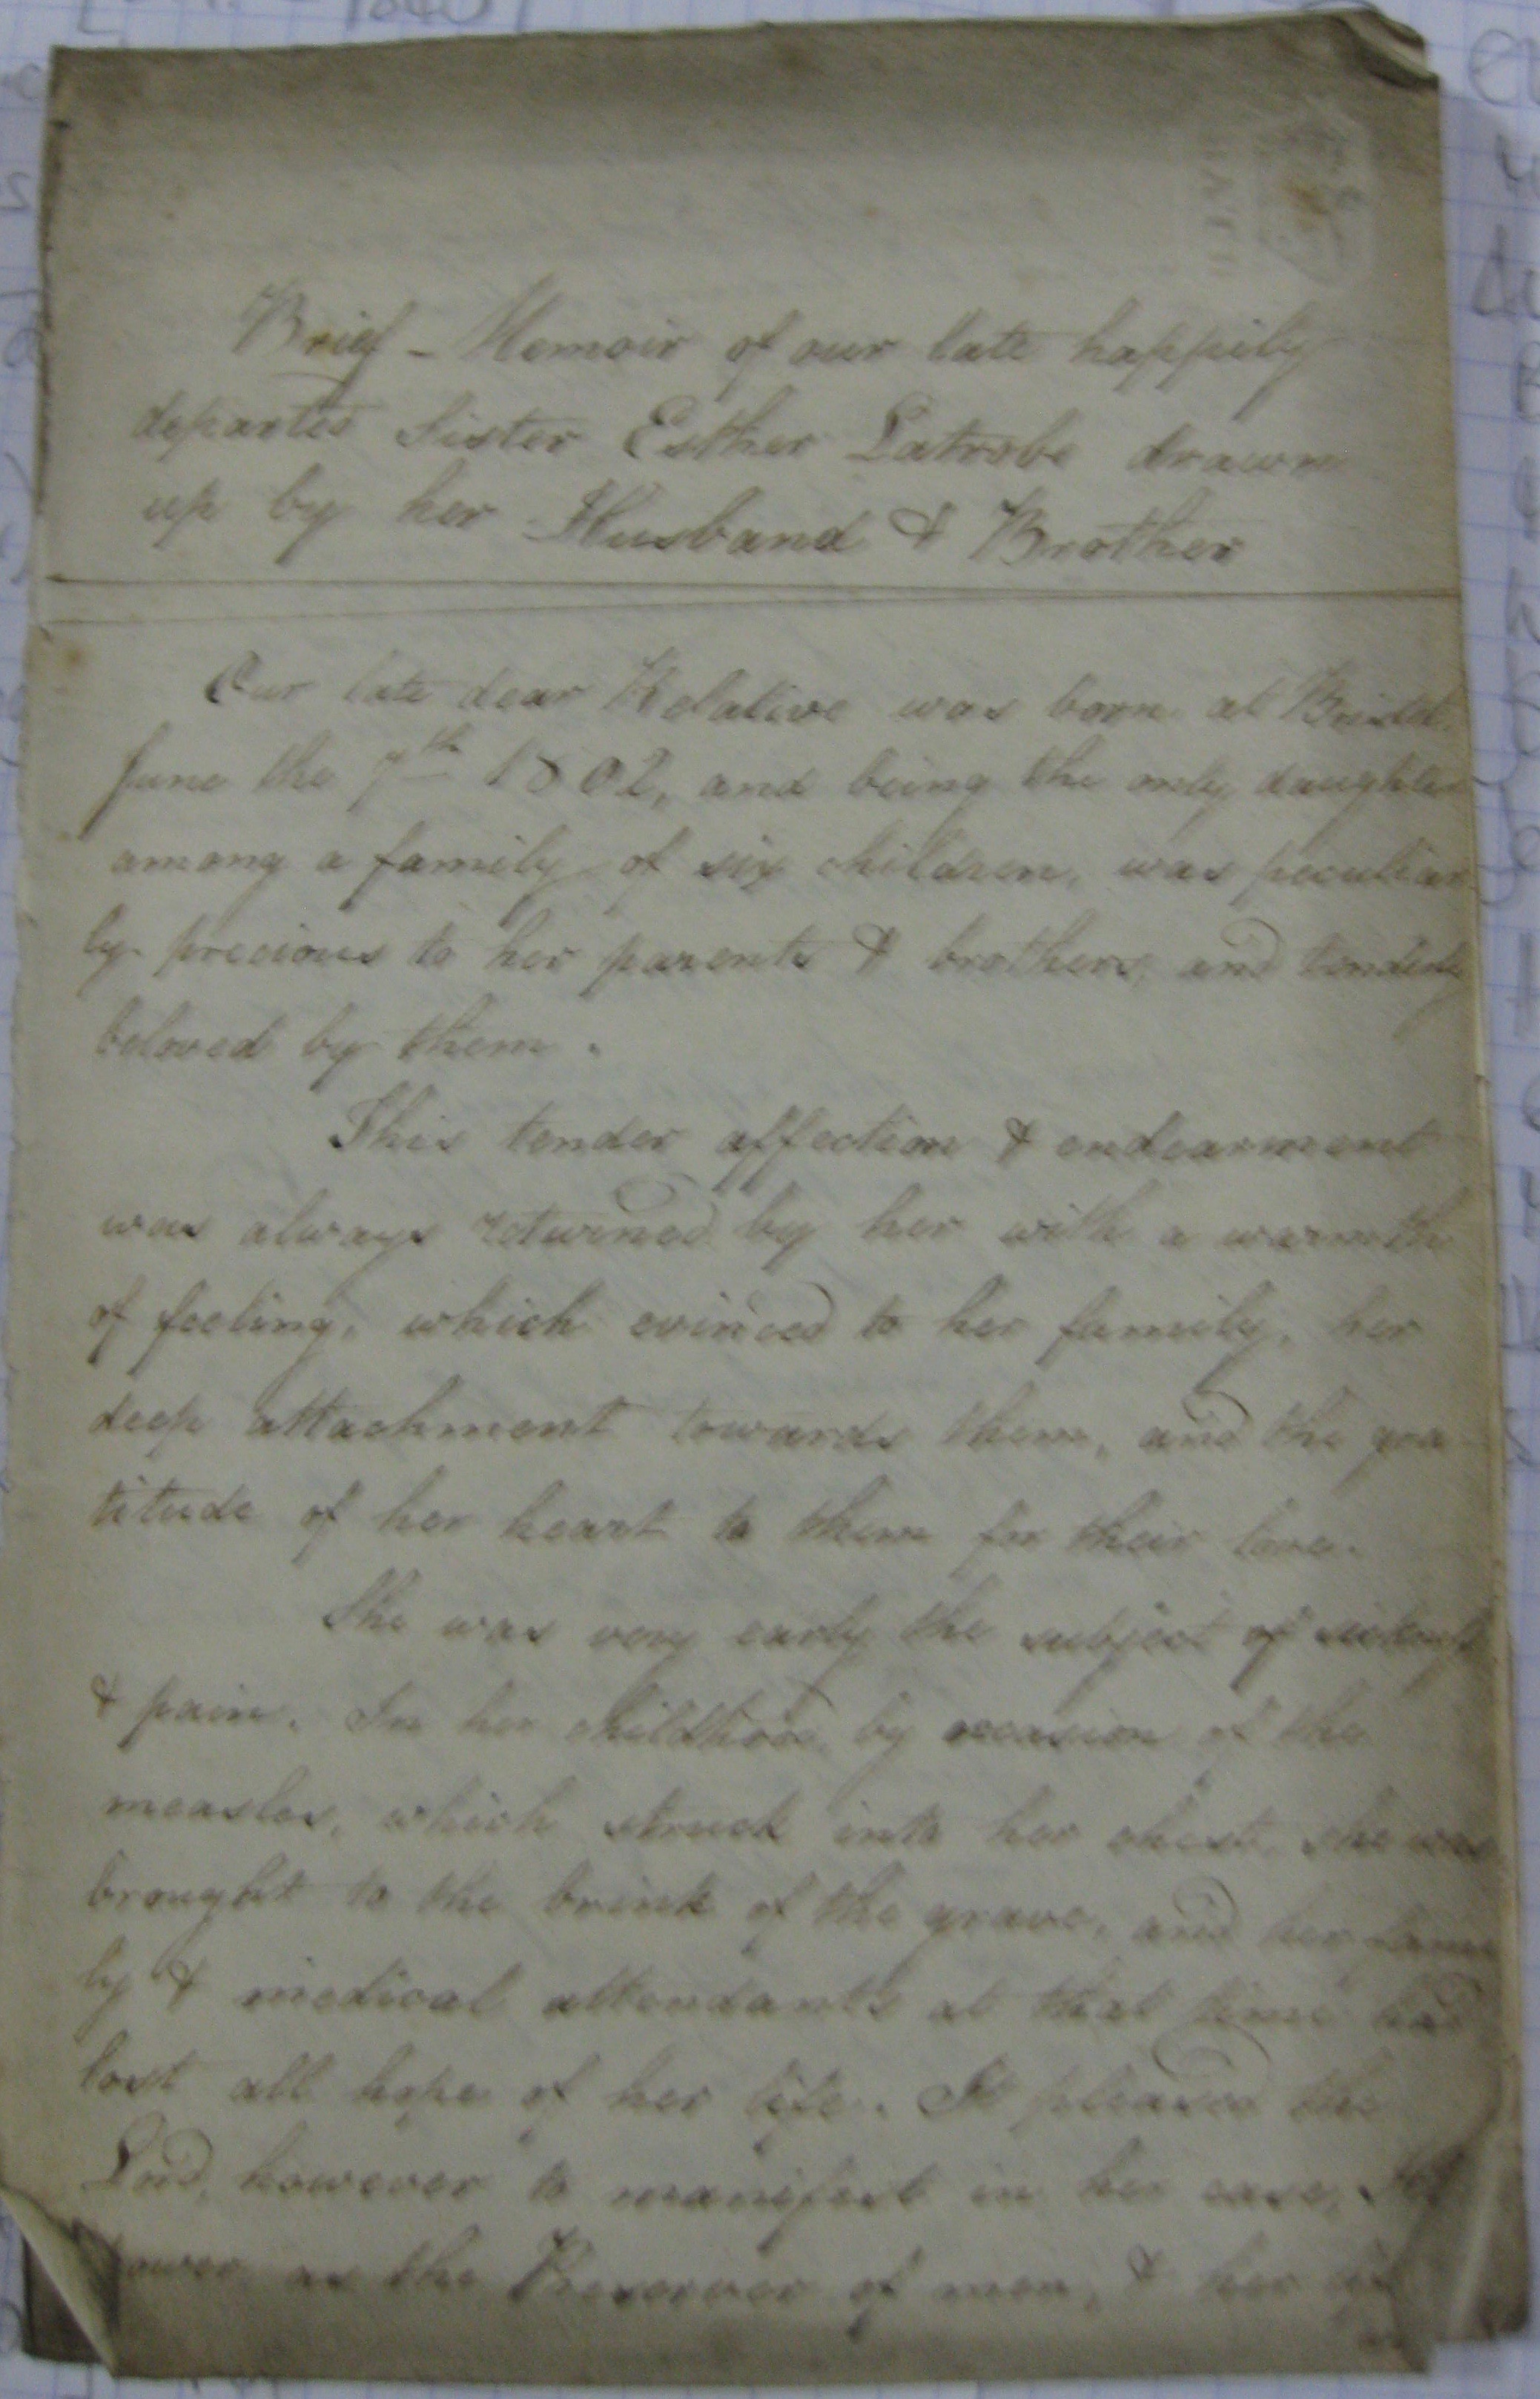 Brief - Memoir of our late happily
departed Sister Esther Latrobe drawn
up by her Husband & Brother
Our late dear Relative was born at Bristol.
June the 7th 1802, and being the only daughter
among a family of six children, was peculiar-
ly precious to her parents & brothers, and tenderly
beloved by them.
This tender affection & endearment
was always returned by her with a warmth
of feeling, which evinced to her family, her
deep attachment towards them, and the gra-
titude of her heart to them for their love.
She was very early the subject of sickness
& pain. In her childhood, by occasion of the
measles, which struck into her chest, she was
brought to the brink of the grave, and her fami
ly & medical attendants at that time had
lost all hope of her life. It pleased the
Lord, however to manifest in her case, His
power as the Preserver of men, & her